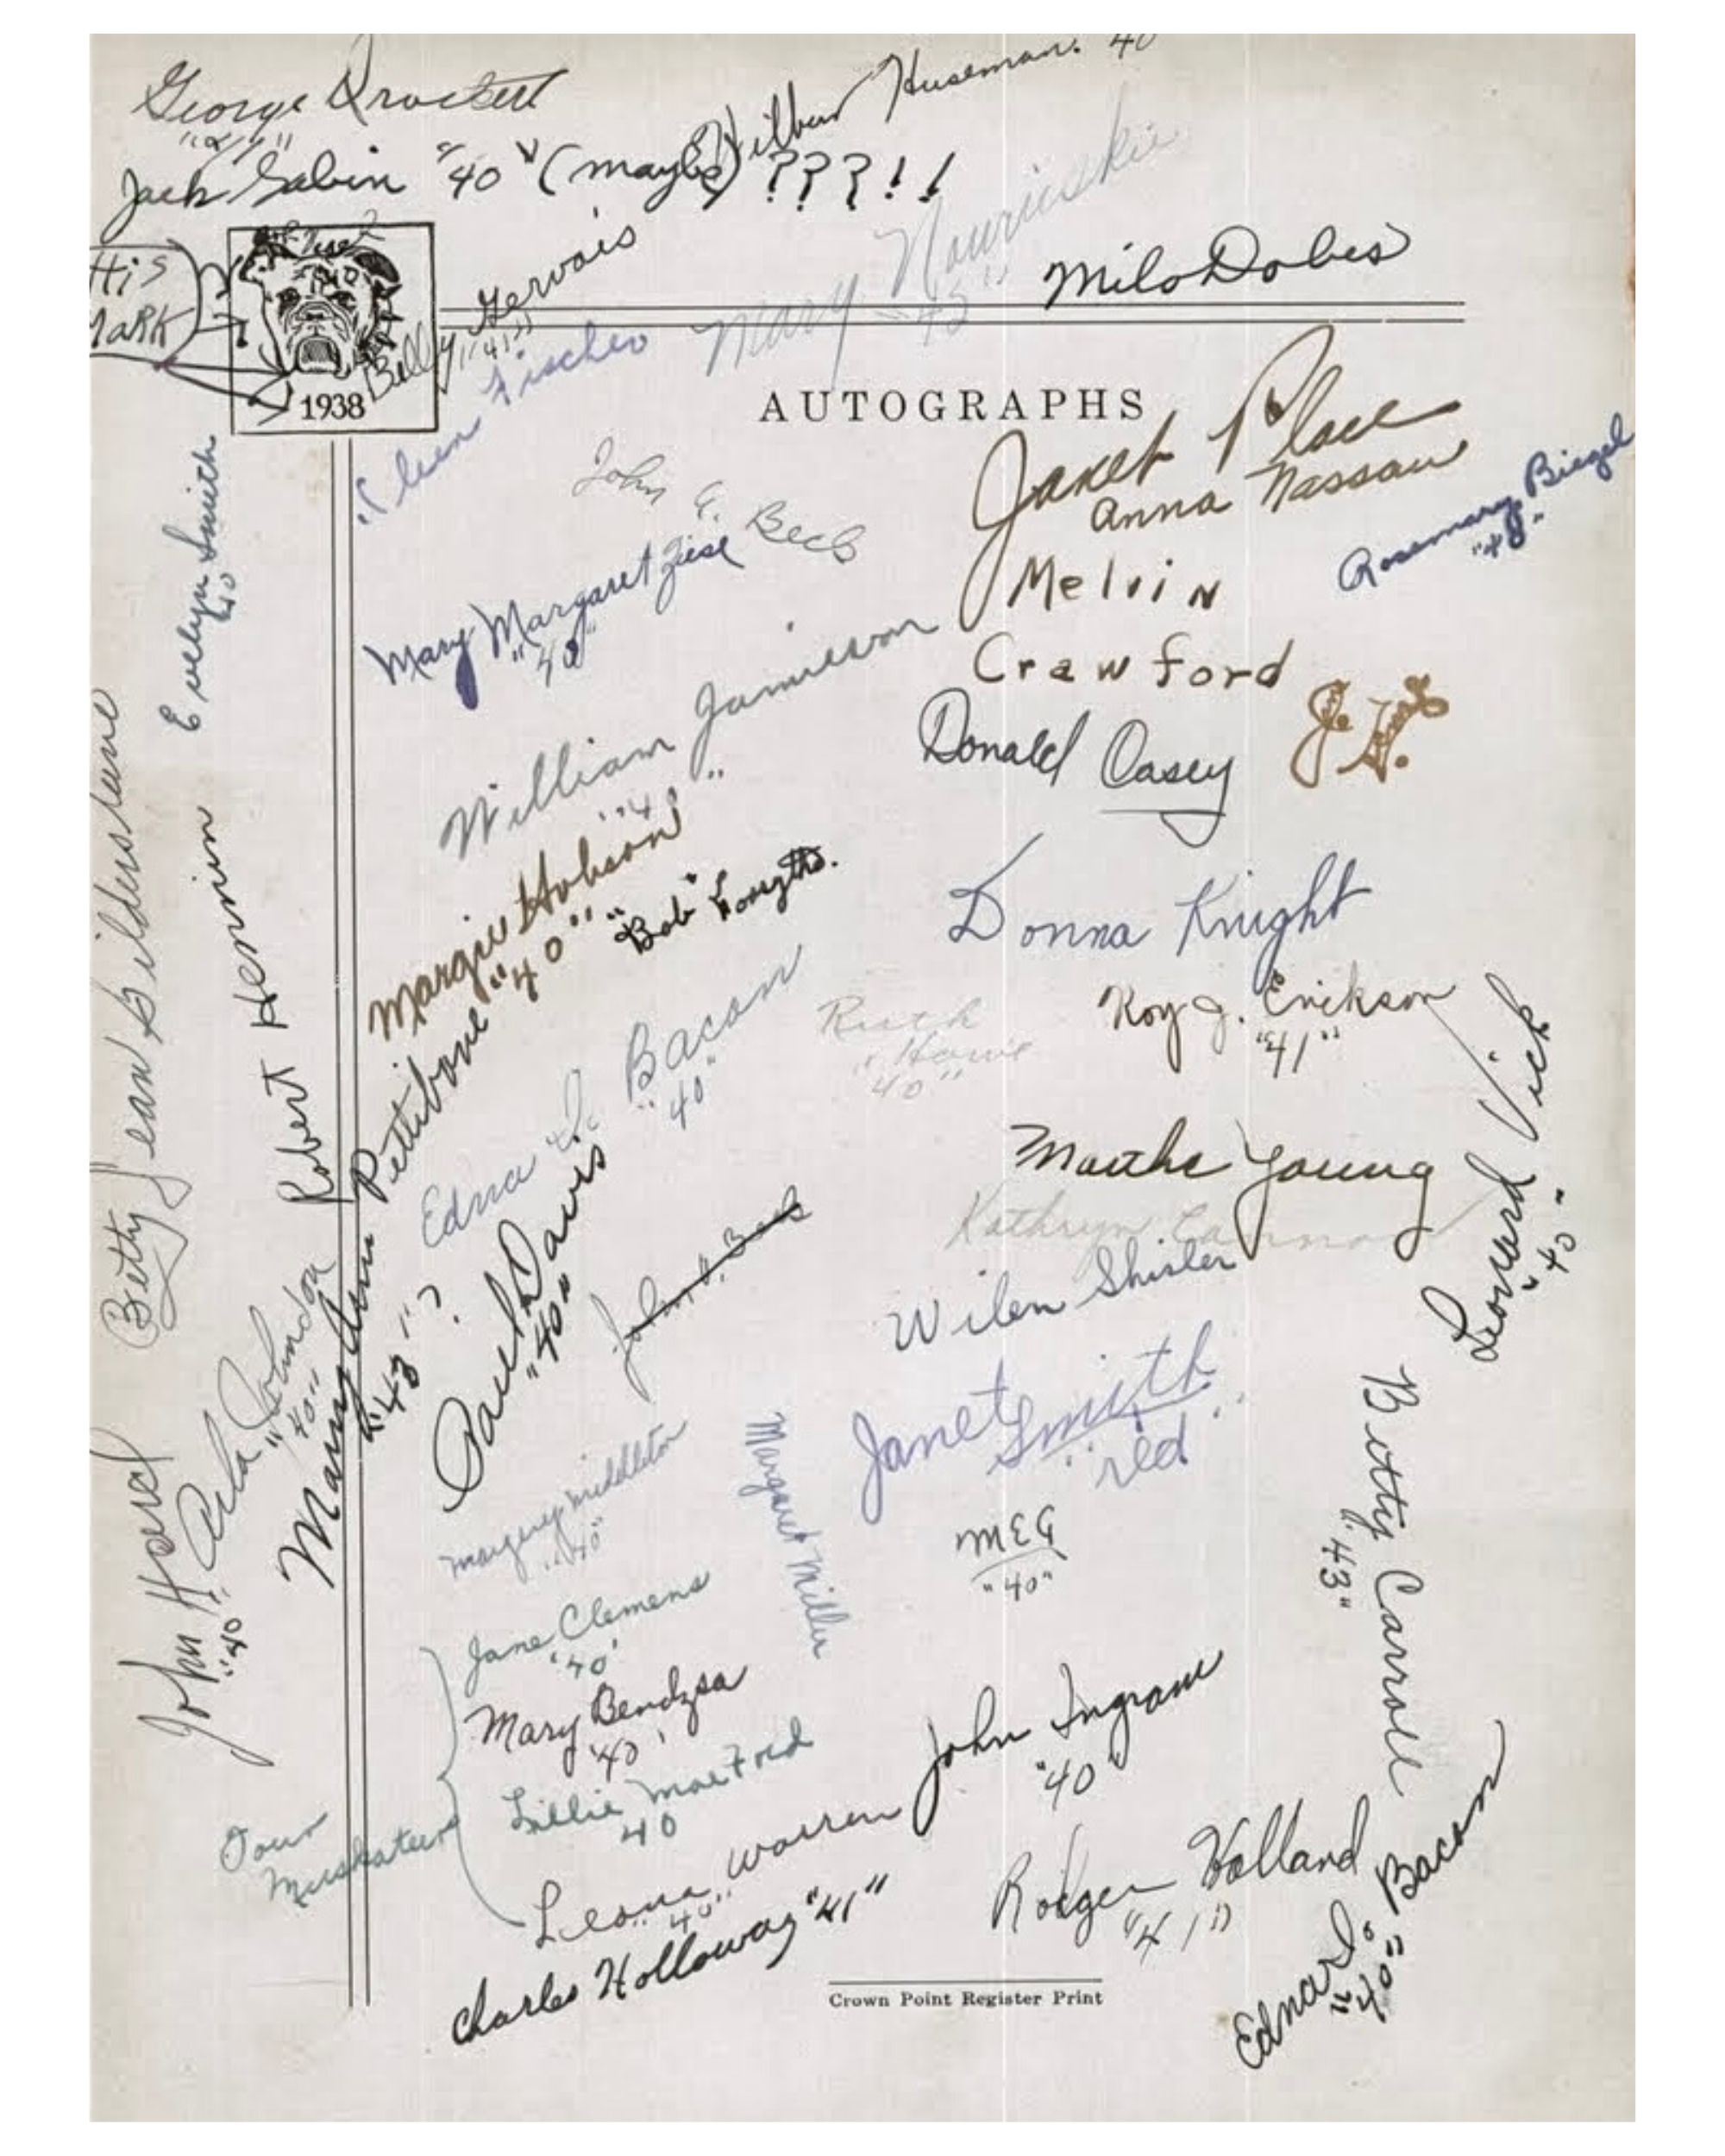 George
"41"
Wilbur Huseman. 40
Jack Gabin "40" (maybe) ???!!
His
Mark
1938
Billy Gervais
"41"
Mary
"43"
Milo Dobes
Eileen Fischer
AUTOGRAPHS
Janet Place
Anna Nassau
Rosemary Biegel
"40"
John G. Beck
Evelyn Smith
40
Mary Margaret Ziese
"40"
Melvin
Crawford
William Jamieson
"40"
Donald Casey
Betty Jean
Robert Hennin
Margie Hobson
"40"
"Bob" Forsythe.
Donna Knight
Edna I. Bacon
"40"
Ruth
Howe
"40"
Roy J. Erickson
"41"
Leonard Vick
"40"
Mary Ann Pettibone
"43"?
Martha Young
Kathryn Cannon
Paul Davis
"40"
Wilen Shisler
Janet Smith
"red"
John Horel
"40"
Arla Johnson
"40"
Margery Middleton
"40"
Margaret Miller
MEG
"40"
Betty Carroll
"43"
Jane Clemens
'40'
Mary Bendzsa
'40'
Lillie Mae Ford
40
Four
Muskateers
Leona Warren
"40"
John Ingram
"40"
Charles Holloway "41"
Rodger Holland
"41"
Edna I. Bacon
"40"
Crown Point Register Print